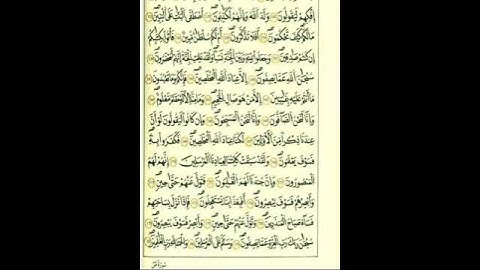 إِفْكِهِمْ لَيَقُولُونَ ۝ وَلَدَ ٱللَّهُ وَإِنَّهُمْ لَكَٰذِبُونَ ۝ أَصْطَفَى ٱلْبَنَاتِ عَلَى ٱلْبَنِينَ ۝
مَا لَكُمْ كَيْفَ تَحْكُمُونَ ۝ أَفَلَا تَذَكَّرُونَ ۝ أَمْ لَكُمْ سُلْطَٰنٌ مُّبِينٌ ۝ فَأْتُوا۟ بِكِتَٰبِكُمْ
إِن كُنتُمْ صَٰدِقِينَ ۝ وَجَعَلُوا۟ بَيْنَهُۥ وَبَيْنَ ٱلْجِنَّةِ نَسَبًا وَلَقَدْ عَلِمَتِ ٱلْجِنَّةُ إِنَّهُمْ لَمُحْضَرُونَ ۝
سُبْحَٰنَ ٱللَّهِ عَمَّا يَصِفُونَ ۝ إِلَّا عِبَادَ ٱللَّهِ ٱلْمُخْلَصِينَ ۝ فَإِنَّكُمْ وَمَا تَعْبُدُونَ ۝
مَآ أَنتُمْ عَلَيْهِ بِفَٰتِنِينَ ۝ إِلَّا مَنْ هُوَ صَالِ ٱلْجَحِيمِ ۝ وَمَا مِنَّآ إِلَّا لَهُۥ مَقَامٌ مَّعْلُومٌ ۝
وَإِنَّا لَنَحْنُ ٱلصَّآفُّونَ ۝ وَإِنَّا لَنَحْنُ ٱلْمُسَبِّحُونَ ۝ وَإِن كَانُوا۟ لَيَقُولُونَ ۝ لَوْ أَنَّ
عِندَنَا ذِكْرًا مِّنَ ٱلْأَوَّلِينَ ۝ لَكُنَّا عِبَادَ ٱللَّهِ ٱلْمُخْلَصِينَ ۝ فَكَفَرُوا۟ بِهِۦ
فَسَوْفَ يَعْلَمُونَ ۝ وَلَقَدْ سَبَقَتْ كَلِمَتُنَا لِعِبَادِنَا ٱلْمُرْسَلِينَ ۝ إِنَّهُمْ لَهُمُ
ٱلْمَنصُورُونَ ۝ وَإِنَّ جُندَنَا لَهُمُ ٱلْغَٰلِبُونَ ۝ فَتَوَلَّ عَنْهُمْ حَتَّىٰ حِينٍ ۝
وَأَبْصِرْهُمْ فَسَوْفَ يُبْصِرُونَ ۝ أَفَبِعَذَابِنَا يَسْتَعْجِلُونَ ۝ فَإِذَا نَزَلَ بِسَاحَتِهِمْ
فَسَآءَ صَبَاحُ ٱلْمُنذَرِينَ ۝ وَتَوَلَّ عَنْهُمْ حَتَّىٰ حِينٍ ۝ وَأَبْصِرْ فَسَوْفَ يُبْصِرُونَ ۝
سُبْحَٰنَ رَبِّكَ رَبِّ ٱلْعِزَّةِ عَمَّا يَصِفُونَ ۝ وَسَلَٰمٌ عَلَى ٱلْمُرْسَلِينَ ۝ وَٱلْحَمْدُ لِلَّهِ رَبِّ ٱلْعَٰلَمِينَ ۝